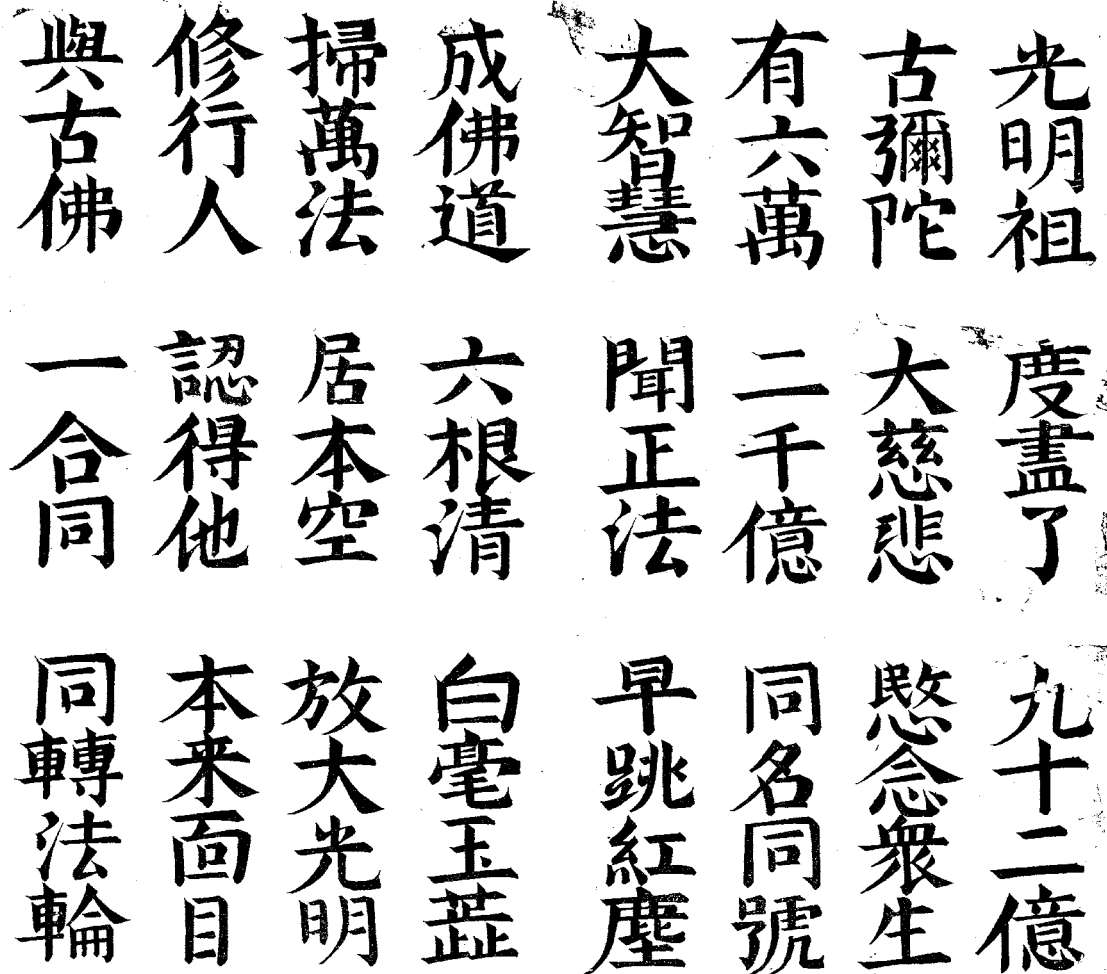 光明祖 度盡了 九十二億
古彌陀 大慈悲 愍念衆生
有六萬 二千億 同名同號
大智慧 聞正法 早跳紅塵
成佛道 六根清 白毫玉蘂
掃萬法 居本空 放大光明
修行人 認得他 本来面目
與古佛 一合同 同轉法輪